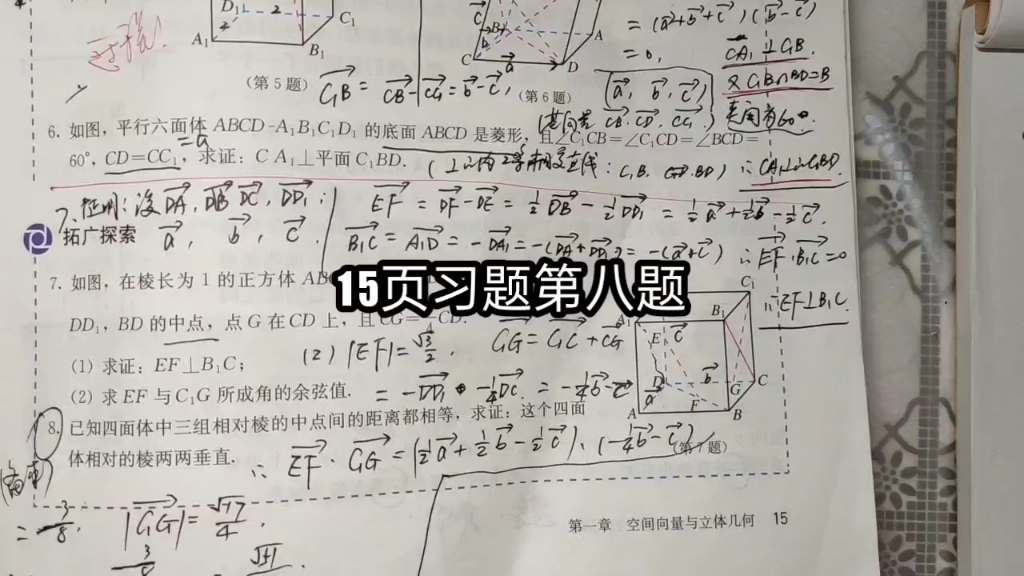 D₁
2
2
C₁
A₁
B₁
(第5题)
C
A
D
(第6题)
= (a+b+c)(b-c)
= 0,
CA₁⊥C₁B.
又C₁B∩BD=B
C₁B = CB - CC₁ = b - c,
(a, b, c)
夹角为60°.
6. 如图，平行六面体 ABCD-A₁B₁C₁D₁ 的底面 ABCD 是菱形，且∠C₁CB=∠C₁CD=∠BCD=
60°，CD=CC₁，求证：CA₁⊥平面 C₁BD.
= a
∴ CA₁⊥面C₁BD.
7. 证明：设 DA, DC, DD₁：
a, b, c.
EF = DF - DE = ½DB - ½DD₁ = ½a + ½b - ½c.
B₁C = A₁D = -DA₁ = -(DA+DD₁) = -(a+c)
∴ EF·B₁C=0
∴ EF⊥B₁C.
拓广探索
7. 如图，在棱长为 1 的正方体 AB
15页习题第八题
DD₁，BD 的中点，点 G 在 CD 上，且 CG= CD.
(1) 求证：EF⊥B₁C；
(2) 求 EF 与 C₁G 所成角的余弦值.
(2) |EF| = √3/2.
C₁G = C₁C + CG
= -DD₁ - ¼DC = -¼b - c
C₁
B₁
E
c
b
D
a
G
C
A
F
B
(第7题)
8. 已知四面体中三组相对棱的中点间的距离都相等，求证：这个四面
体相对的棱两两垂直.
∴ EF · C₁G = (½a + ½b - ½c)·(-¼b - c)
= 3/8.
|C₁G| = √17/4.
第一章 空间向量与立体几何 15